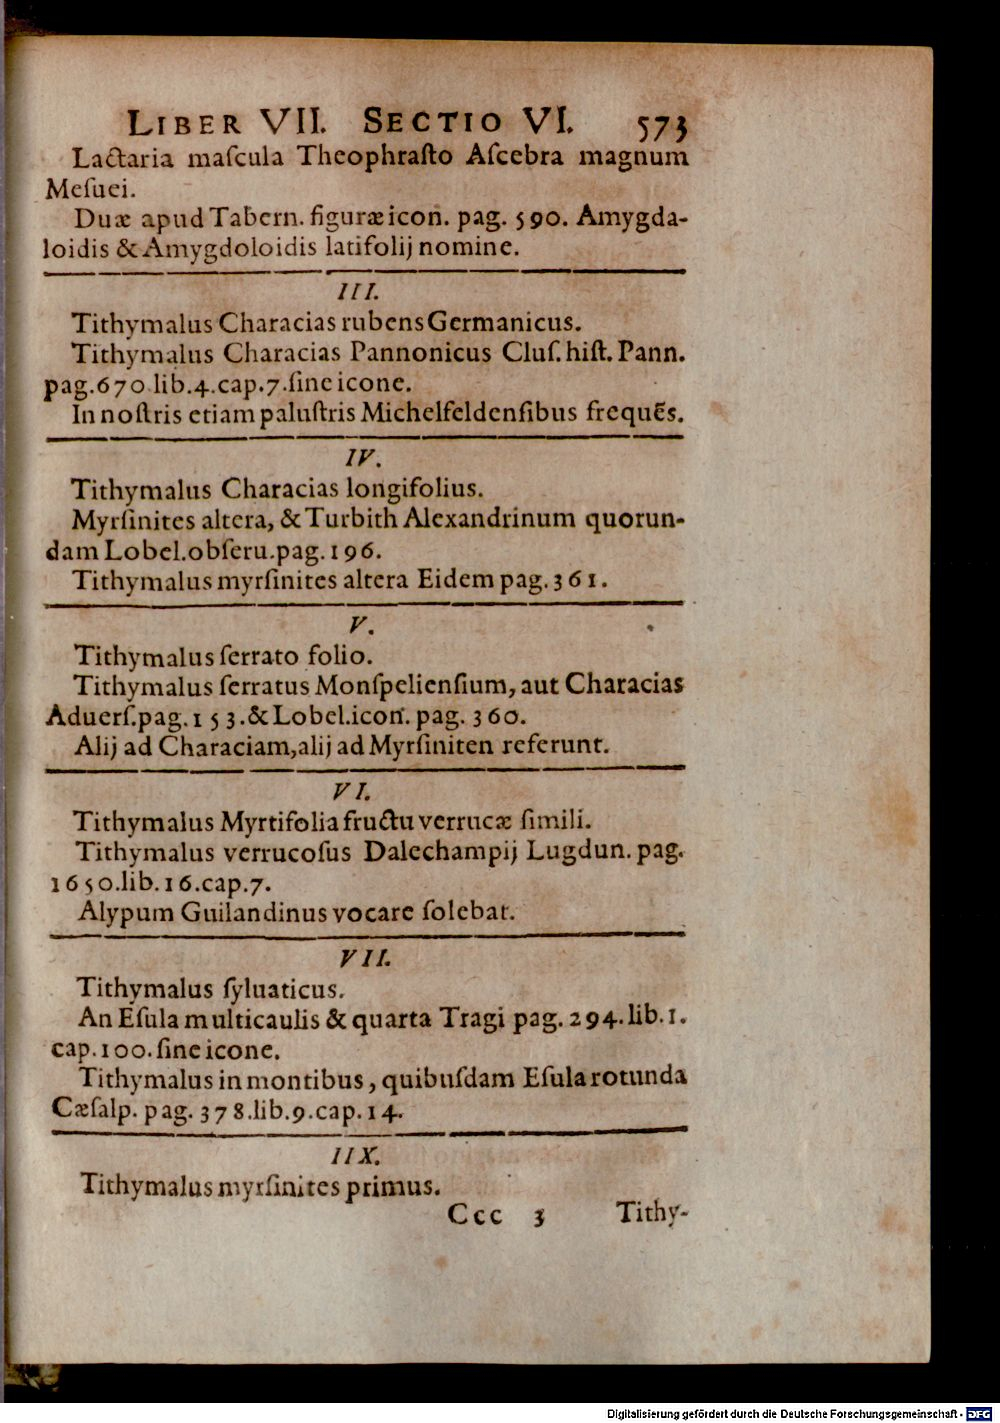 LIBER VII. SECTIO VI. 573
Lactaria maſcula Theophraſto Aſcebra magnum
Meſuei.
Duæ apud Tabern. figuræ icon. pag. 590. Amygda-
loidis & Amygdoloidis latifolij nomine.
III.
Tithymalus Characias rubens Germanicus.
Tithymalus Characias Pannonicus Cluſ. hiſt. Pann.
pag. 670 lib. 4. cap. 7. ſine icone.
In noſtris etiam paluſtris Michelfeldenſibus frequẽs.
IV.
Tithymalus Characias longifolius.
Myrſinites altera, & Turbith Alexandrinum quorun-
dam Lobel. obſeru. pag. 196.
Tithymalus myrſinites altera Eidem pag. 361.
V.
Tithymalus ſerrato folio.
Tithymalus ſerratus Monſpelienſium, aut Characias
Aduerſ. pag. 153. & Lobel. icon. pag. 360.
Alij ad Characiam, alij ad Myrſiniten referunt.
VI.
Tithymalus Myrtifolia fructu verrucæ ſimili.
Tithymalus verrucoſus Dalechampij Lugdun. pag.
1650. lib. 16. cap. 7.
Alypum Guilandinus vocare ſolebat.
VII.
Tithymalus ſyluaticus.
An Eſula multicaulis & quarta Tragi pag. 294. lib. 1.
cap. 100. ſine icone.
Tithymalus in montibus, quibuſdam Eſula rotunda
Cæſalp. pag. 378. lib. 9. cap. 14.
IIX.
Tithymalus myrſinites primus.
Ccc 3 Tithy-
Digitalisierung gefördert durch die Deutsche Forschungsgemeinschaft - DFG